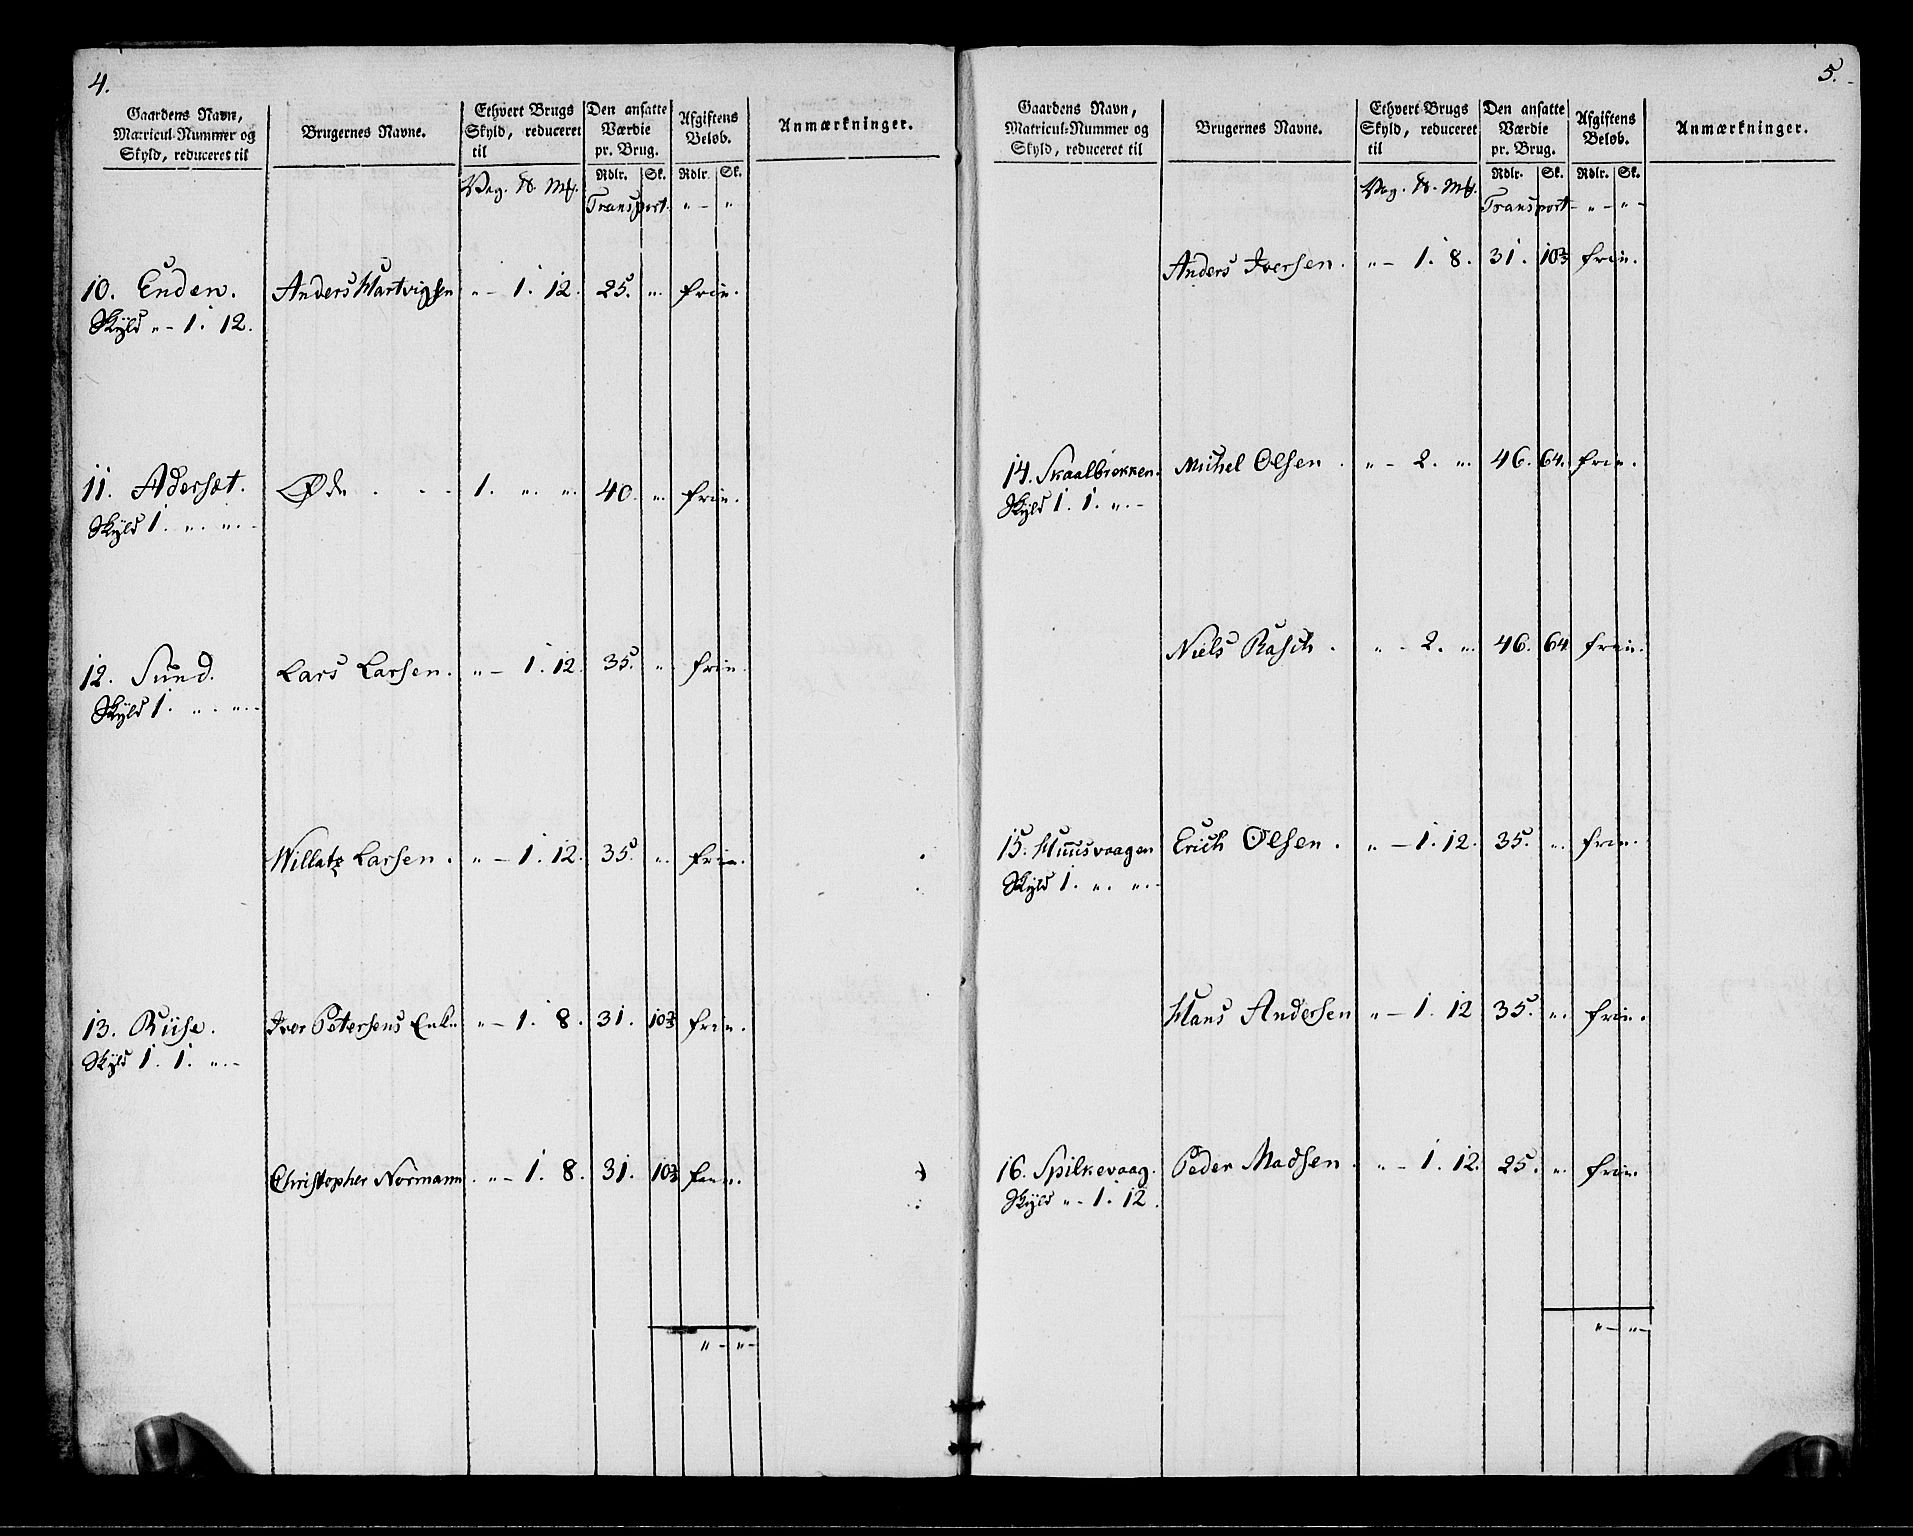 4.
Gaardens Navn, Matricul-Nummer og Skyld, reduceret til
Brugernes Navne.
Ethvert Brugs Skyld, reduceret til
Den ansatte Værdie pr. Brug.
Afgiftens Beløb.
Anmærkninger.
Vog. ℔. Mk.
Rdlr. Sk. Rdlr. Sk.
Transport. " - "
10. Enden. Anders Hartvigsen " - 1. 12. 25. ". frie.
Skyld " - 1. 12.
11. Adersæt. Øde . . . 1. ". ". 40. ". frie.
Skyld 1. ". ". -
12. Sund. Lars Larsen. " - 1. 12. 35. " frie.
Skyld 1. ". ". -
Willatz Larsen. " - 1. 12. 35. ". frie.
13. Riise. Iver Petersens Enke " - 1. 8. 31. 10⅔ frie.
Skyld 1. 1. ". -
Christopher Normann. " - 1. 8. 31. 10⅔ frie.
" - " -
5.
Gaardens Navn, Matricul-Nummer og Skyld, reduceret til
Brugernes Navne.
Ethvert Brugs Skyld, reduceret til
Den ansatte Værdie pr. Brug.
Afgiftens Beløb.
Anmærkninger.
Vog. ℔. Mk.
Rdlr. Sk. Rdlr. Sk.
Transport - " - " -
Anders Iversen. " - 1. 8. 31. 10⅔ frie.
14. Skaalbrekken. Michel Olsen. " - 2. ". 46. 64. frie.
Skyld 1. 1. ". -
Niels Rasch. " - 2. ". 46. 64 frie.
15. Huusvaagen Erich Olsen. " - 1. 12. 35. ". frie.
Skyld 1. ". ". -
Hans Andersen " - 1. 12 35. ". frie.
16. Spilkevaag. Peder Madsen. " - 1. 12. 25. ". frie.
Skyld " - 1. 12.
" - " -